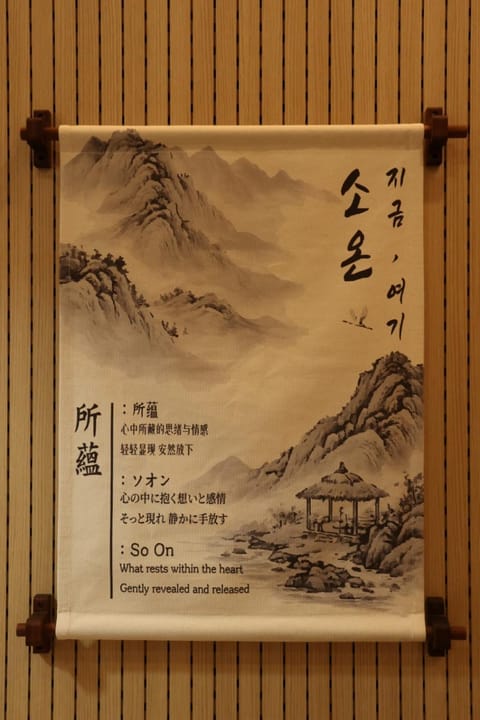 지금, 여기
소온
所蘊
: 所蕴
心中所藏的思绪与情感
轻轻显现 安然放下
: ソオン
心の中に抱く想いと感情
そっと現れ 静かに手放す
: So On
What rests within the heart
Gently revealed and released